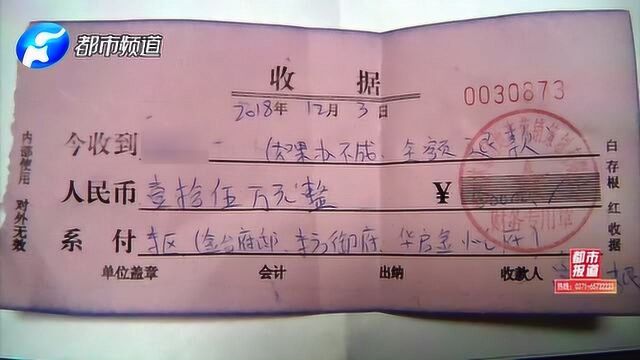 都市频道
收 据
0030873
2018年 12月 3日
今收到 (如果办不成、全额退款
人民币 壹拾伍万元整 ¥
系付 东区(金台府邸、东方御府、华启金
单位盖章 会计 出纳 收款人
内部使用 对外无效
白存根 红收据
财务专用章
都市报道
热线：0371-65732233